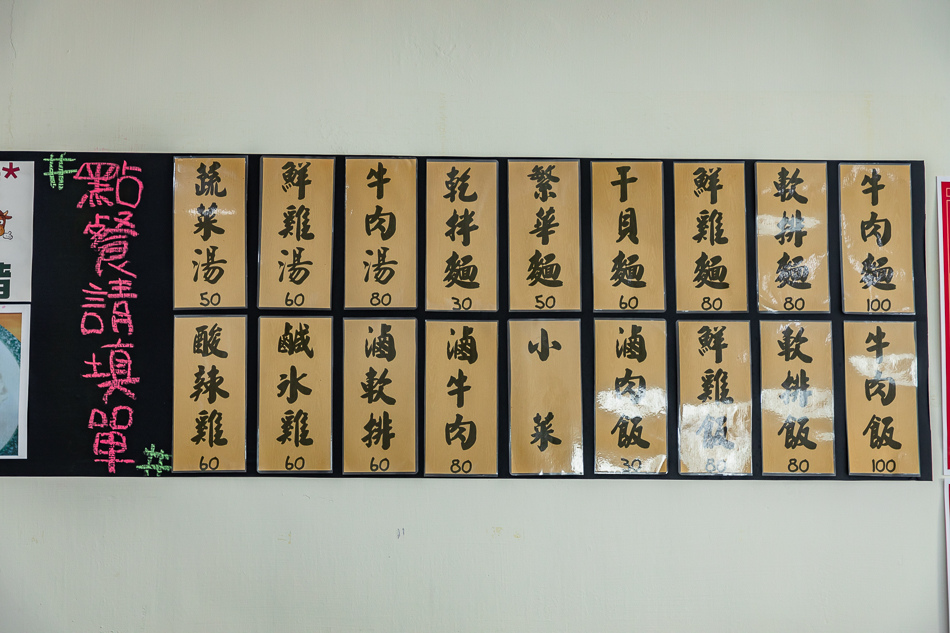 #點餐請填單#
牛肉麵 100
軟排麵 80
鮮雞麵 80
干貝麵 60
繁華麵 50
乾拌麵 30
牛肉湯 80
鮮雞湯 60
蔬菜湯 50
牛肉飯 100
軟排飯 80
鮮雞飯 80
滷肉飯 30
小菜
滷牛肉 80
滷軟排 60
鹹水雞 60
酸辣雞 60